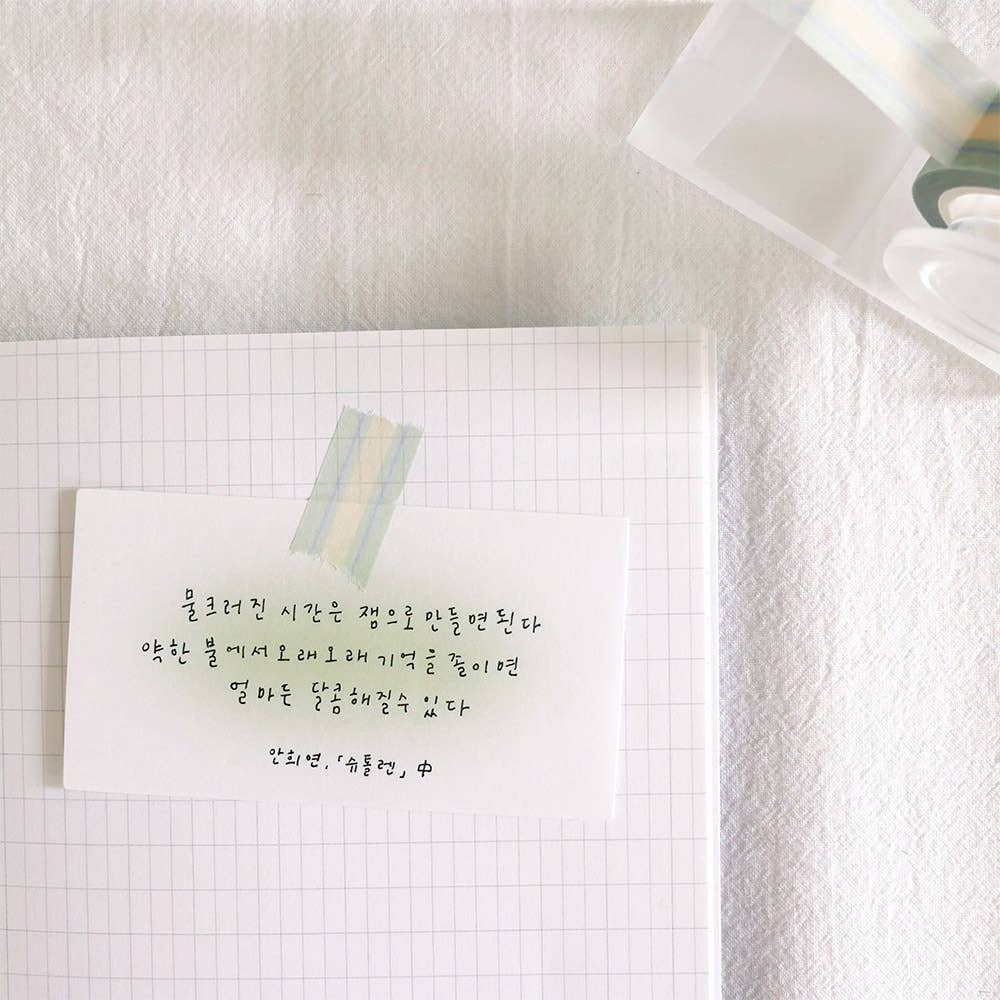 물크러진 시간은 잼으로 만들면 된다
약한 불에서 오래오래 기억을 졸이면
얼마든 달콤해질 수 있다
안희연, 「슈톨렌」 中